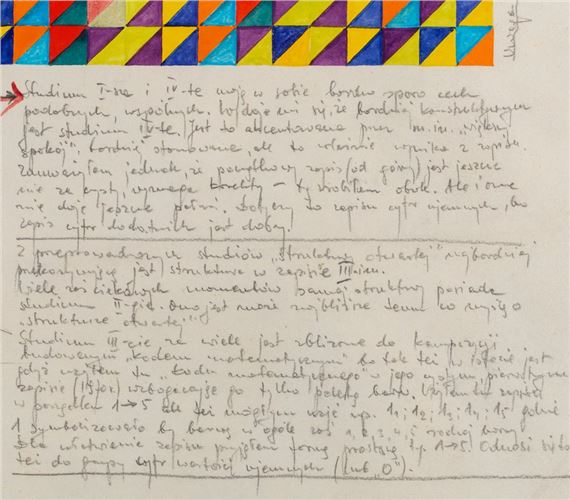 Uwaga
Studium I-sze i IV-te mają w sobie bardzo sporo cech
podobnych, wspólnych. Wydaje mi się, że bardziej konstruktywnym
jest studium IV-te. Jest to akcentowane przez m.in. „większy
spokój” bardziej stonowane, ale to właśnie wynika z zapisu.
Zauważyłem jednak, że początkowy zapis (od góry) jest jeszcze
nie za czysty, wymaga korekty – tę zrobiłem obok. Ale i one
nie daje jeszcze pełni. Dotyczy to zapisu cyfr ujemnych, bo
zapis cyfr dodatnich jest dobry.
Z przeprowadzonych studiów „struktury otwartej” najbardziej
jest struktura w zapisie III-cim.
Wiele zaś ciekawych momentów samej struktury posiada
studium II-gie. Ono jest może najbliższe temu co wyżej
„strukturze otwartej”.
Studium III-cie za wiele jest zbliżone do kompozycji
budowanych „kodem matematycznym” bo tak też w istocie jest
gdyż użyłem tu „kodu matematycznego” w jego
zapisie wzbogacając go tylko barw. zapisu
w porządku 1→5 ale też mógłbym wziąć np. 1₁; 1₂; 1₃; 1₄; 1₅ gdzie
1 symbolizowało by barwę w ogóle zaś 1, 2, 3, 4, 5 rodzaj barwy
Dla ułatwienia zapisu przyjąłem formę prostszą tj. 1→5. Odnosi się to
też do grupy cyfr wartości ujemnych (lub „0”).